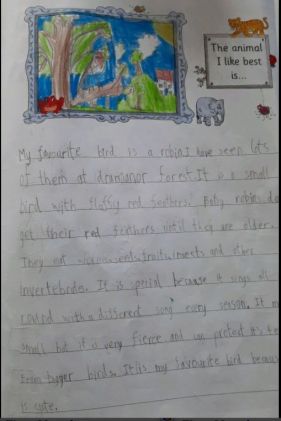 The animal
I like best
is...
My favourite bird is a robin. I have seen lots
of them at dramanor forest. It is a small
bird with fluffy red feathers. Baby robins do
get their red feathers until they are older.
They eat worms, seeds, fruits, insects and other
invertebrates. It is special because it sings all
round with a different song every season. It m
small but it is very fierce and can protect it's te
from bigger birds. It is my favourite bird because
is cute.